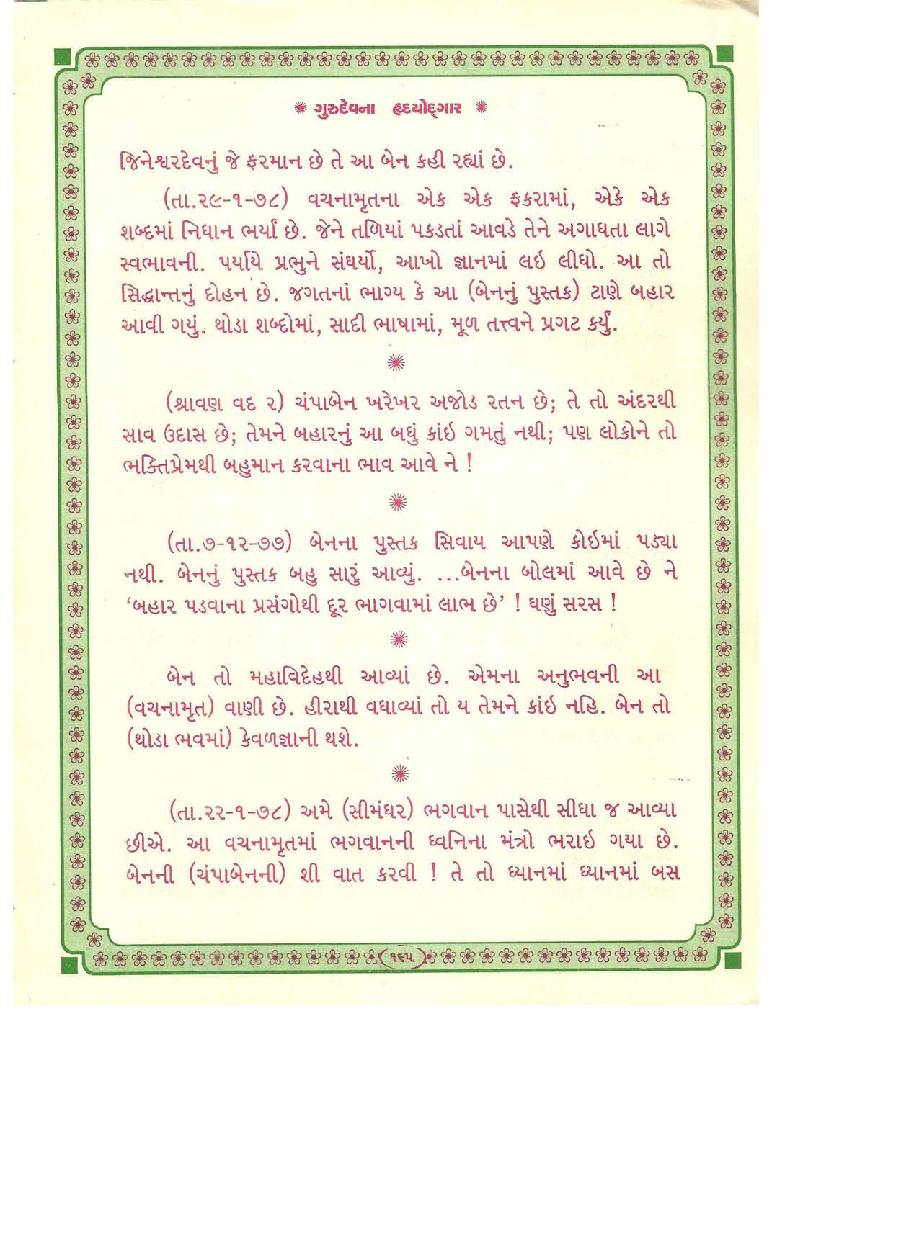 ❋ ગુરુદેવના હૃદયોદ્ગાર ❋
જિનેશ્વરદેવનું જે ફરમાન છે તે આ બેન કહી રહ્યાં છે.
(તા.૨૯-૧-૭૮) વચનામૃતના એક એક ફકરામાં, એકે એક
શબ્દમાં નિધાન ભર્યાં છે. જેને તળિયાં પકડતાં આવડે તેને અગાધતા લાગે
સ્વભાવની. પર્યાયે પ્રભુને સંઘર્યો, આખો જ્ઞાનમાં લઇ લીધો. આ તો
સિદ્ધાન્તનું દોહન છે. જગતનાં ભાગ્ય કે આ (બેનનું પુસ્તક) ટાણે બહાર
આવી ગયું. થોડા શબ્દોમાં, સાદી ભાષામાં, મૂળ તત્ત્વને પ્રગટ કર્યું.
❋
(શ્રાવણ વદ ૨) ચંપાબેન ખરેખર અજોડ રતન છે; તે તો અંદરથી
સાવ ઉદાસ છે; તેમને બહારનું આ બધું કાંઇ ગમતું નથી; પણ લોકોને તો
ભક્તિપ્રેમથી બહુમાન કરવાના ભાવ આવે ને !
❋
(તા.૭-૧૨-૭૭) બેનના પુસ્તક સિવાય આપણે કોઇમાં પડ્યા
નથી. બેનનું પુસ્તક બહુ સારું આવ્યું. ...બેનના બોલમાં આવે છે ને
‘બહાર પડવાના પ્રસંગોથી દૂર ભાગવામાં લાભ છે’ ! ઘણું સરસ !
❋
બેન તો મહાવિદેહથી આવ્યાં છે. એમના અનુભવની આ
(વચનામૃત) વાણી છે. હીરાથી વધાવ્યાં તો ય તેમને કાંઇ નહિ. બેન તો
(થોડા ભવમાં) કેવળજ્ઞાની થશે.
❋
(તા.૨૨-૧-૭૮) અમે (સીમંધર) ભગવાન પાસેથી સીધા જ આવ્યા
છીએ. આ વચનામૃતમાં ભગવાનની ધ્વનિના મંત્રો ભરાઇ ગયા છે.
બેનની (ચંપાબેનની) શી વાત કરવી ! તે તો ધ્યાનમાં ધ્યાનમાં બસ
૧૬૫